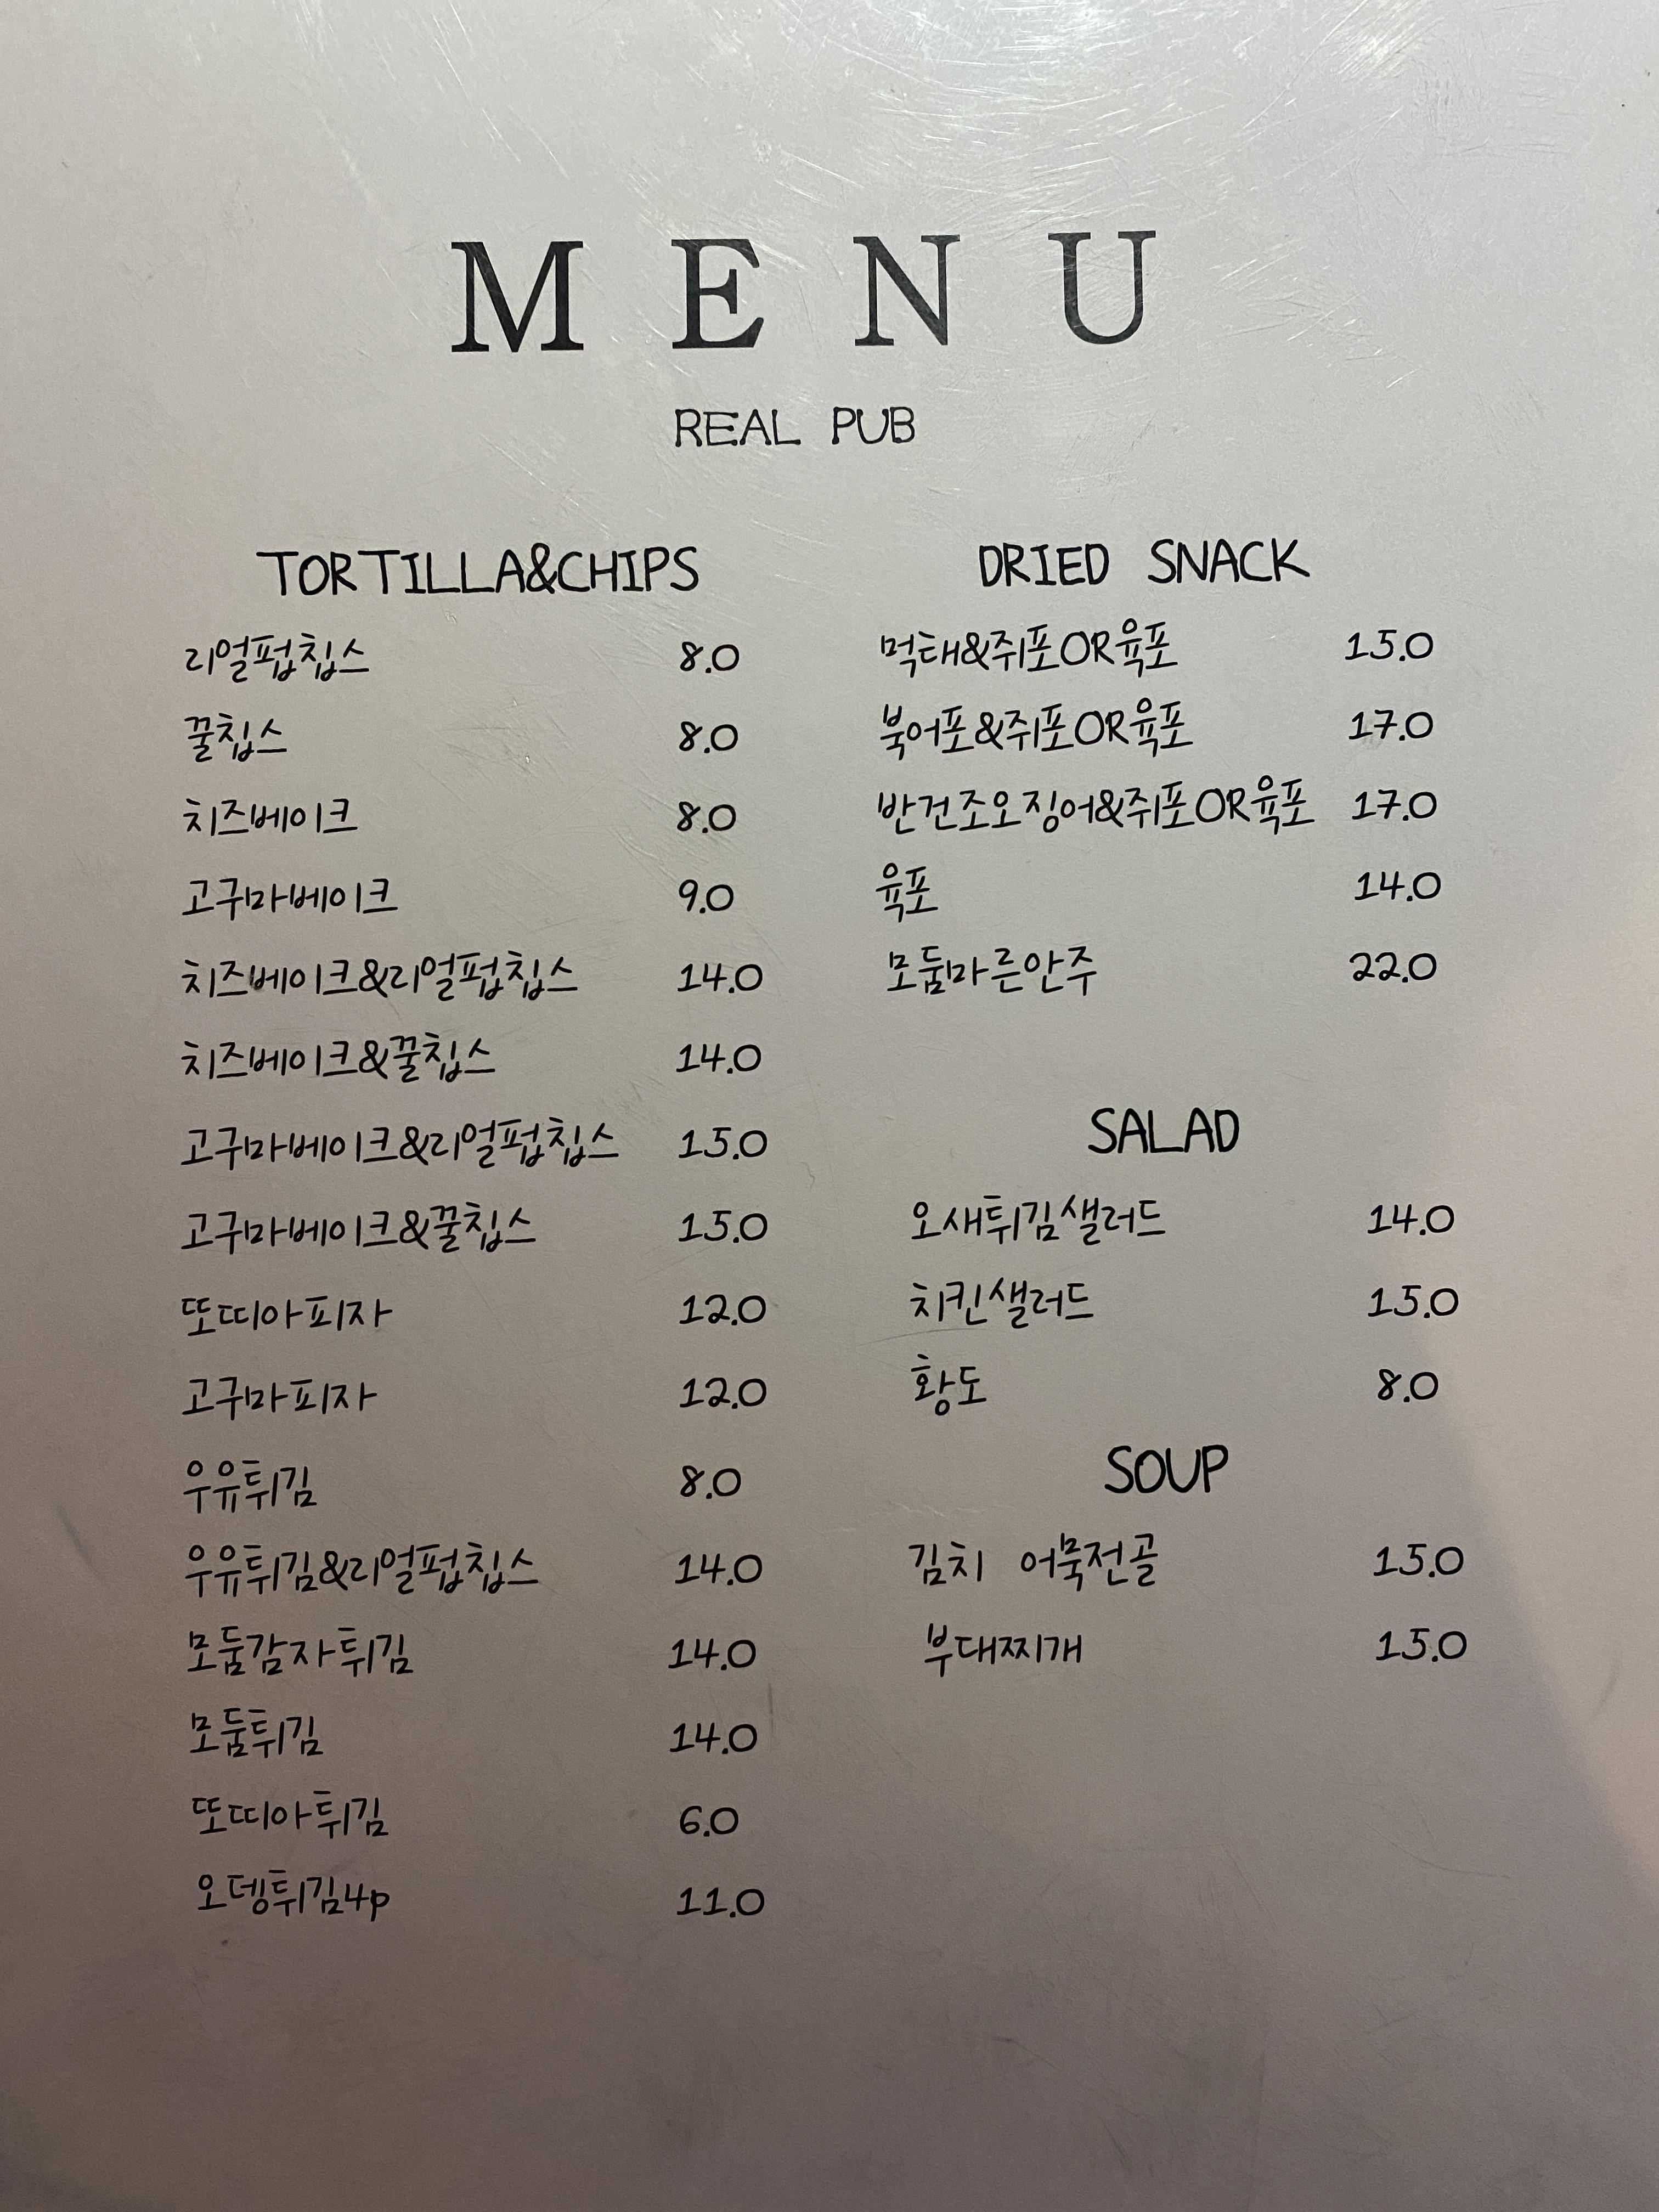 MENU
REAL PUB
TORTILLA&CHIPS
리얼펍칩스 8.0
꿀칩스 8.0
치즈베이크 8.0
고구마베이크 9.0
치즈베이크&리얼펍칩스 14.0
치즈베이크&꿀칩스 14.0
고구마베이크&리얼펍칩스 15.0
고구마베이크&꿀칩스 15.0
또띠아피자 12.0
고구마피자 12.0
우유튀김 8.0
우유튀김&리얼펍칩스 14.0
모둠감자튀김 14.0
모둠튀김 14.0
또띠아튀김 6.0
오뎅튀김4p 11.0
DRIED SNACK
먹태&쥐포OR육포 15.0
북어포&쥐포OR육포 17.0
반건조오징어&쥐포OR육포 17.0
육포 14.0
모둠마른안주 22.0
SALAD
오새튀김샐러드 14.0
치킨샐러드 15.0
황도 8.0
SOUP
김치 어묵전골 15.0
부대찌개 15.0